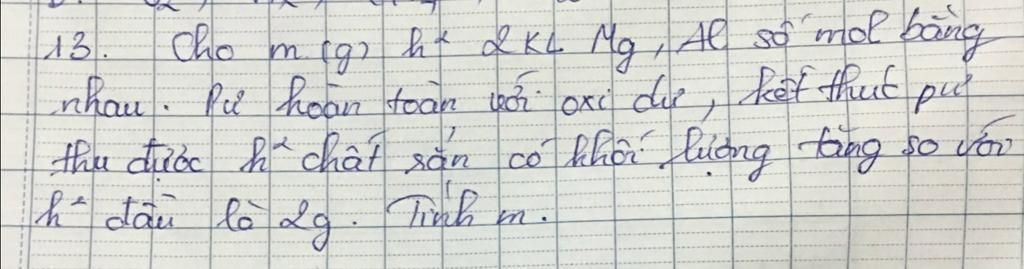 13. Cho m (g) h² 2KL Mg, Al số mol bằng
nhau. Pứ hoàn toàn với oxi dư, kết thut pứ
thu được h² chất rắn có khối lượng tăng so với
h² đầu là 2g. Tính m.